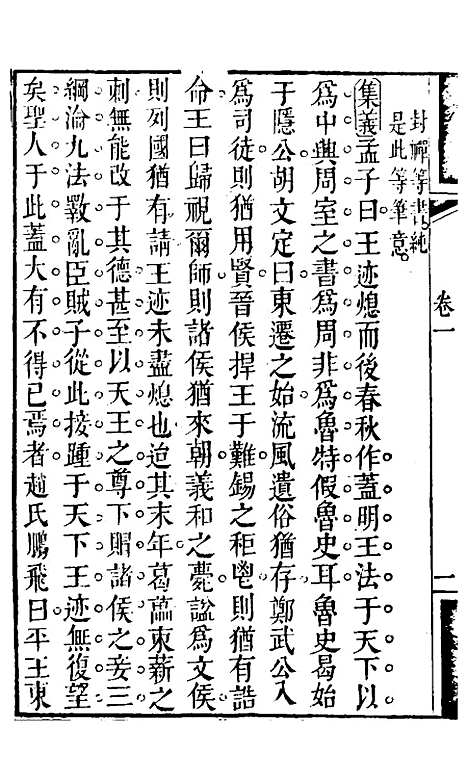 封禪等書純
是此等筆意
集義孟子曰王迹熄而後春秋作蓋明王法于天下以
爲中興周室之書爲周非爲魯特假魯史耳魯史曷始
于隱公胡文定曰東遷之始流風遺俗猶存鄭武公入
爲司徒則猶用賢晉侯捍王于難錫之秬鬯則猶有誥
命王曰歸視爾師則諸侯猶來朝義和之薨諡爲文侯
則列國猶有請王迹未盡熄也迨其末年葛藟束薪之
刺無能改于其德甚至以天王之尊下賵諸侯之妾三
綱淪九法斁亂臣賊子從此接踵于天下王迹無復望
矣聖人于此蓋大有不得已焉者趙氏鵬飛曰平王東
卷一
二